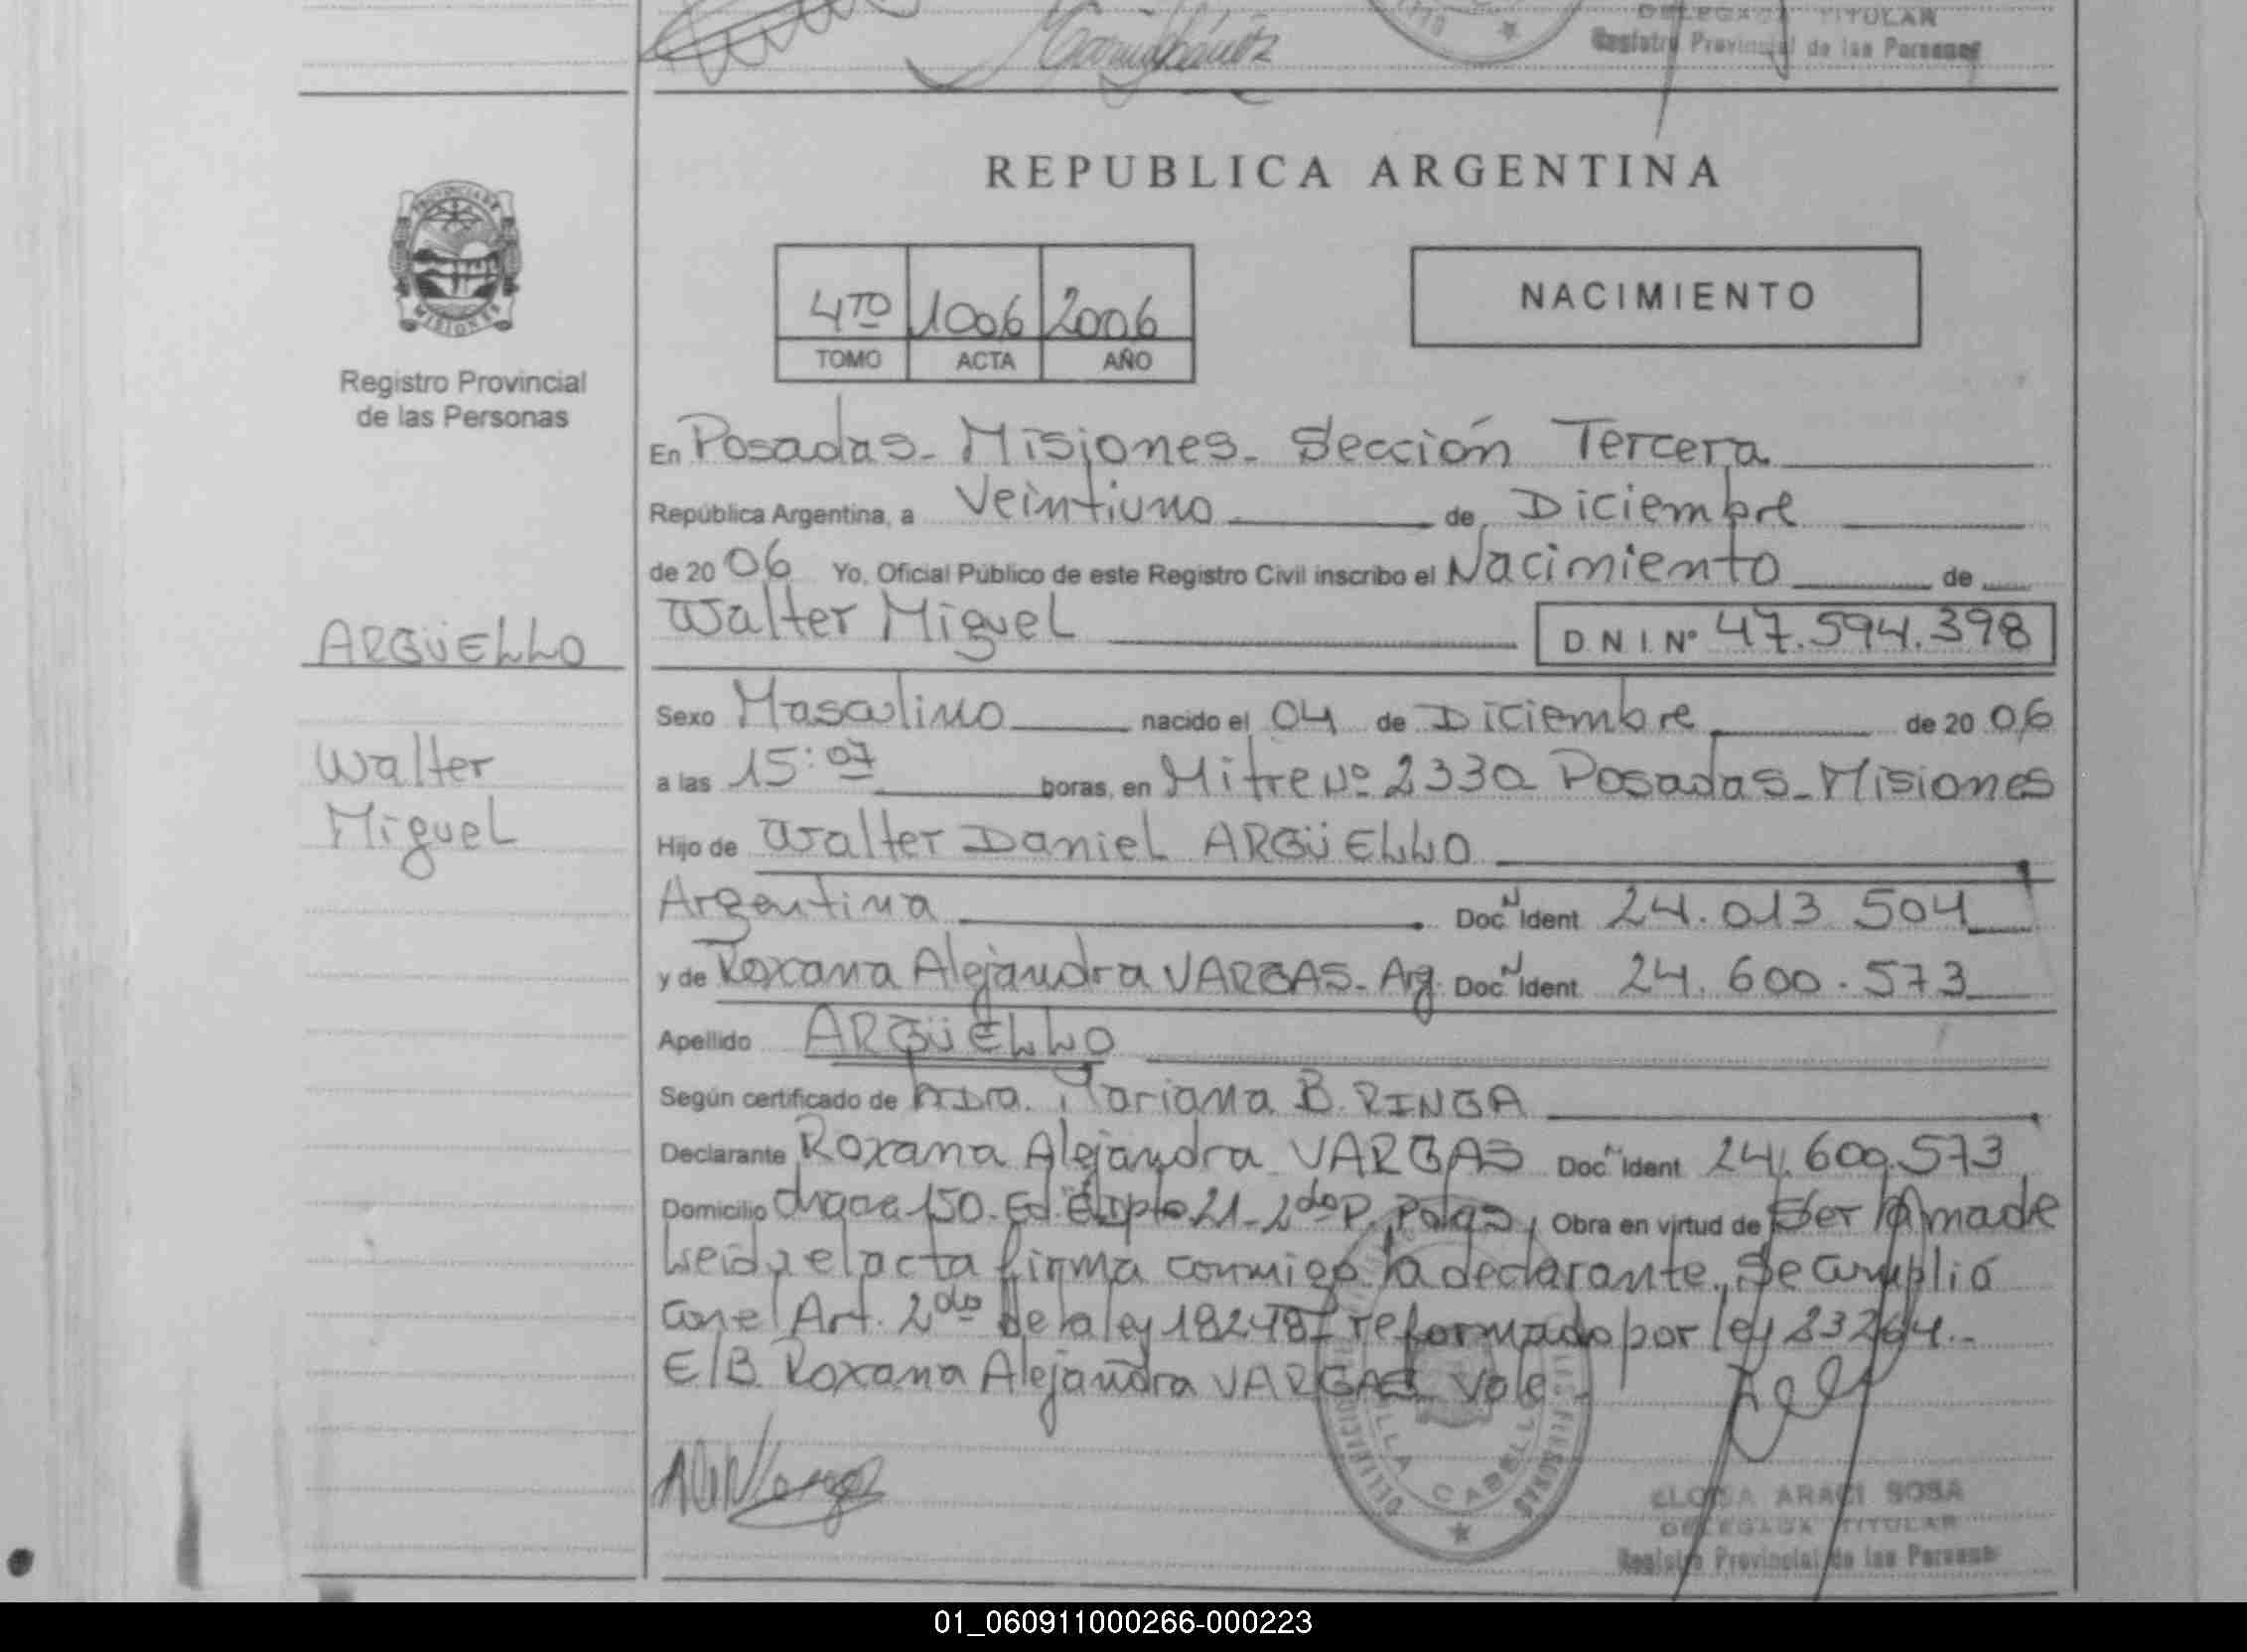 DELEGADA TITULAR
Registro Provincial de las Personas
REPUBLICA ARGENTINA
PROVINCIA DE
MISIONES
4TO 1006 2006
TOMO ACTA AÑO
NACIMIENTO
Registro Provincial
de las Personas
En Posadas - Misiones - Sección Tercera
República Argentina, a Veintiuno de Diciembre
de 2006 Yo, Oficial Público de este Registro Civil inscribo el Nacimiento de
ARGÜELLO
Walter Miguel D.N.I. Nº 47.594.398
Sexo Masculino nacido el 04 de Diciembre de 2006
Walter
a las 15:07 horas, en Mitre Nº 2330 Posadas - Misiones
Miguel
Hijo de Walter Daniel ARGÜELLO
Argentina Doc. Ident 24.013.504
y de Roxana Alejandra VARGAS - Arg. Doc. Ident 24.600.573
Apellido ARGÜELLO
Según certificado de Dra. Mariana B. RINGA
Declarante Roxana Alejandra VARGAS Doc. Ident 24.600.573
Domicilio Chacra 150 - Ed. 21 - 2do P. Obra en virtud de Ser la madre
Leida el acta firma conmigo la declarante. Se cumplió
con el Art. 2do de la ley 18248 reformado por ley 23264.-
E/B Roxana Alejandra VARGAS Vale.-
ELOISA ARACI SOSA
DELEGADA TITULAR
Registro Provincial de las Personas
01_060911000266-000223